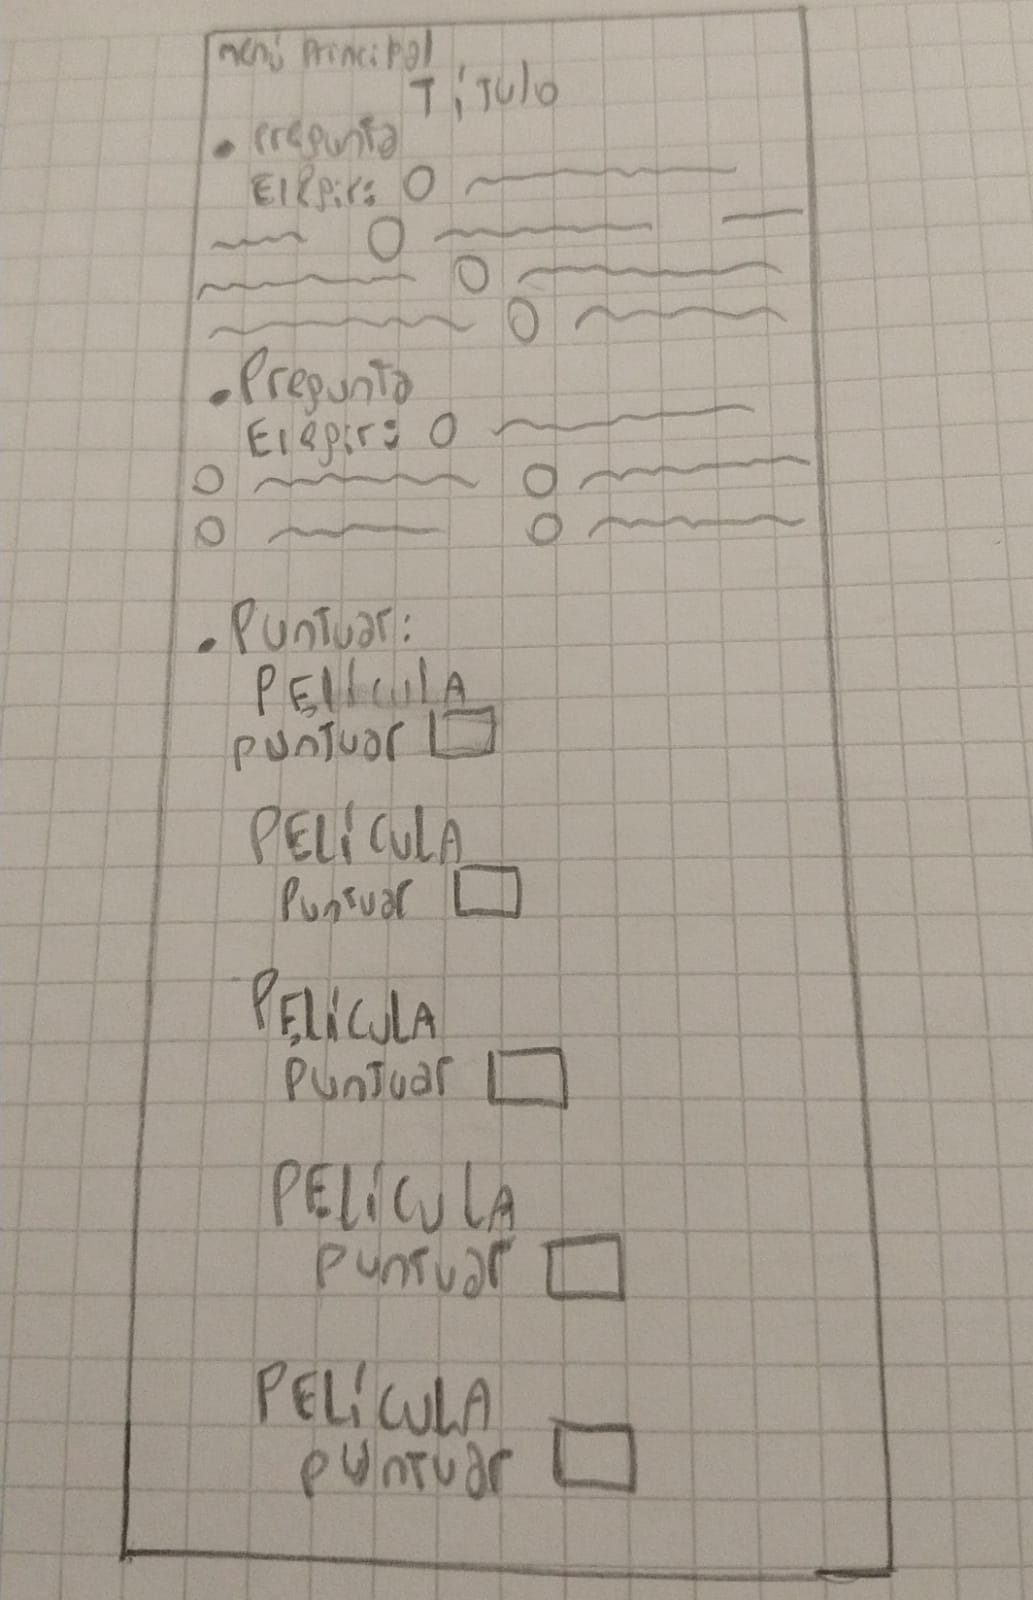 menú principal
Título
• Pregunta
Elegir:
• Pregunta
Elegir:
• Puntuar:
PELÍCULA
puntuar
PELÍCULA
Puntuar
PELÍCULA
Puntuar
PELÍCULA
puntuar
PELÍCULA
puntuar